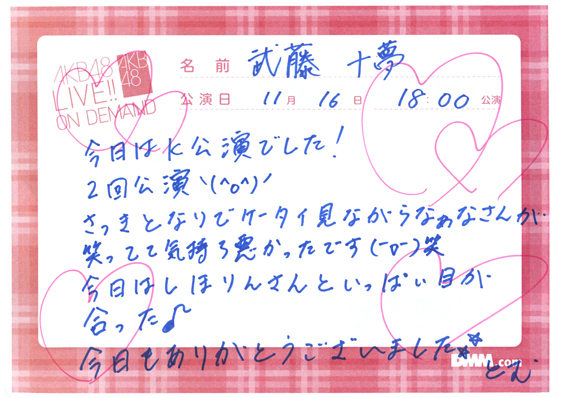 AKB48
LIVE!!
ON DEMAND
AKB
48
名前 武藤 十夢
公演日 11月 16日 18:00 公演
今日はK公演でした!
2回公演\(^o^)/
さっきとなりでケータイ見ながらなぁなさんが
笑ってて気持ち悪かったです(-o-)笑
今日はしほりんさんといっぱい目が
合った♪
今日もありがとうございました☆★
DMM.com
とむ